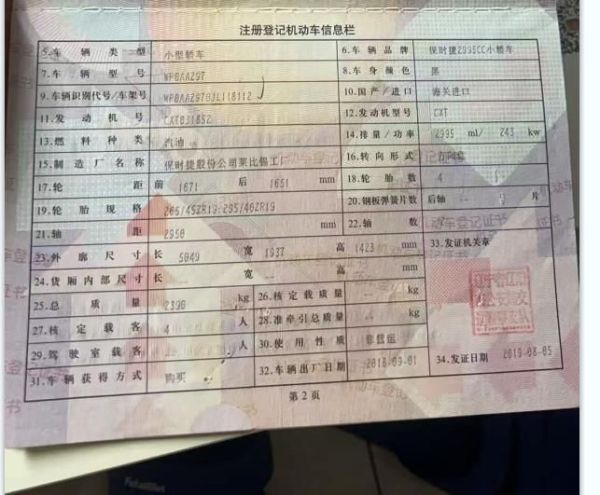 注册登记机动车信息栏
5.车辆类型 小型轿车 6.车辆品牌 保时捷2995CC小轿车
7.车辆型号 WP0AAZ97 8.车身颜色 黑
9.车辆识别代号/车架号 10.国产/进口 海关进口
11.发动机号 12.发动机型号 CXT
13.燃料种类 汽油 14.排量/功率 2995 ml/ 243 kw
15.制造厂名称 保时捷股份公司莱比锡工厂 16.转向形式 方向盘
17.轮距 前 1671 后 1651 mm 18.轮胎数 4
19.轮胎规格 265/45ZR19;295/40ZR19 20.钢板弹簧片数 后轴 片
21.轴距 2950 mm 22.轴数
23.外廓尺寸 长 5049 宽 1937 高 1423 mm 33.发证机关章
24.货厢内部尺寸 长 宽 高 mm
25.总质量 kg 26.核定载质量 kg
27.核定载客 4 人 28.准牵引总质量 kg
29.驾驶室载客 人 30.使用性质 非营运
31.车辆获得方式 购买 32.车辆出厂日期 34.发证日期
第2页